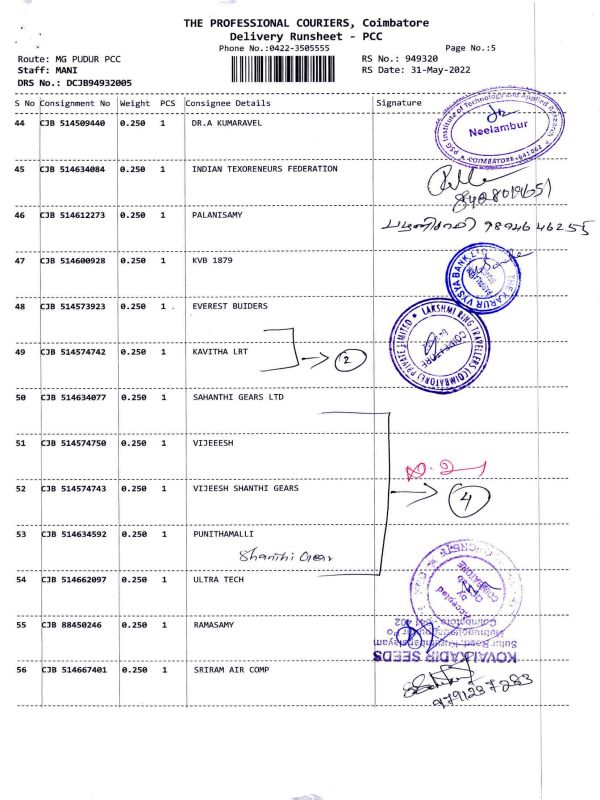 THE PROFESSIONAL COURIERS, Coimbatore
Delivery Runsheet - PCC
Phone No.:0422-3505555
Page No.:5
Route: MG PUDUR PCC
RS No.: 949320
Staff: MANI
RS Date: 31-May-2022
DRS No.: DCJB94932005
S No Consignment No Weight PCS Consignee Details Signature
44 CJB 514509440 0.250 1 DR.A KUMARAVEL
PSG Institute of Technology and Applied Research
Neelambur
COIMBATORE-641062
45 CJB 514634084 0.250 1 INDIAN TEXORENEURS FEDERATION
46 CJB 514612273 0.250 1 PALANISAMY
9894646255
47 CJB 514600928 0.250 1 KVB 1879
THE KARUR VYSYA BANK LTD
48 CJB 514573923 0.250 1 EVEREST BUIDERS
LAKSHMI RING TRAVELLERS (COIMBATORE) PRIVATE LIMITED
COIMBATORE
49 CJB 514574742 0.250 1 KAVITHA LRT
2
50 CJB 514634077 0.250 1 SAHANTHI GEARS LTD
51 CJB 514574750 0.250 1 VIJEEESH
52 CJB 514574743 0.250 1 VIJEESH SHANTHI GEARS
4
53 CJB 514634592 0.250 1 PUNITHAMALLI
Shanthi Gear
54 CJB 514662097 0.250 1 ULTRA TECH
Accepted
COIMBATORE
55 CJB 88450246 0.250 1 RAMASAMY
KOVAI KADIR SEEDS
56 CJB 514667401 0.250 1 SRIRAM AIR COMP
9791237283